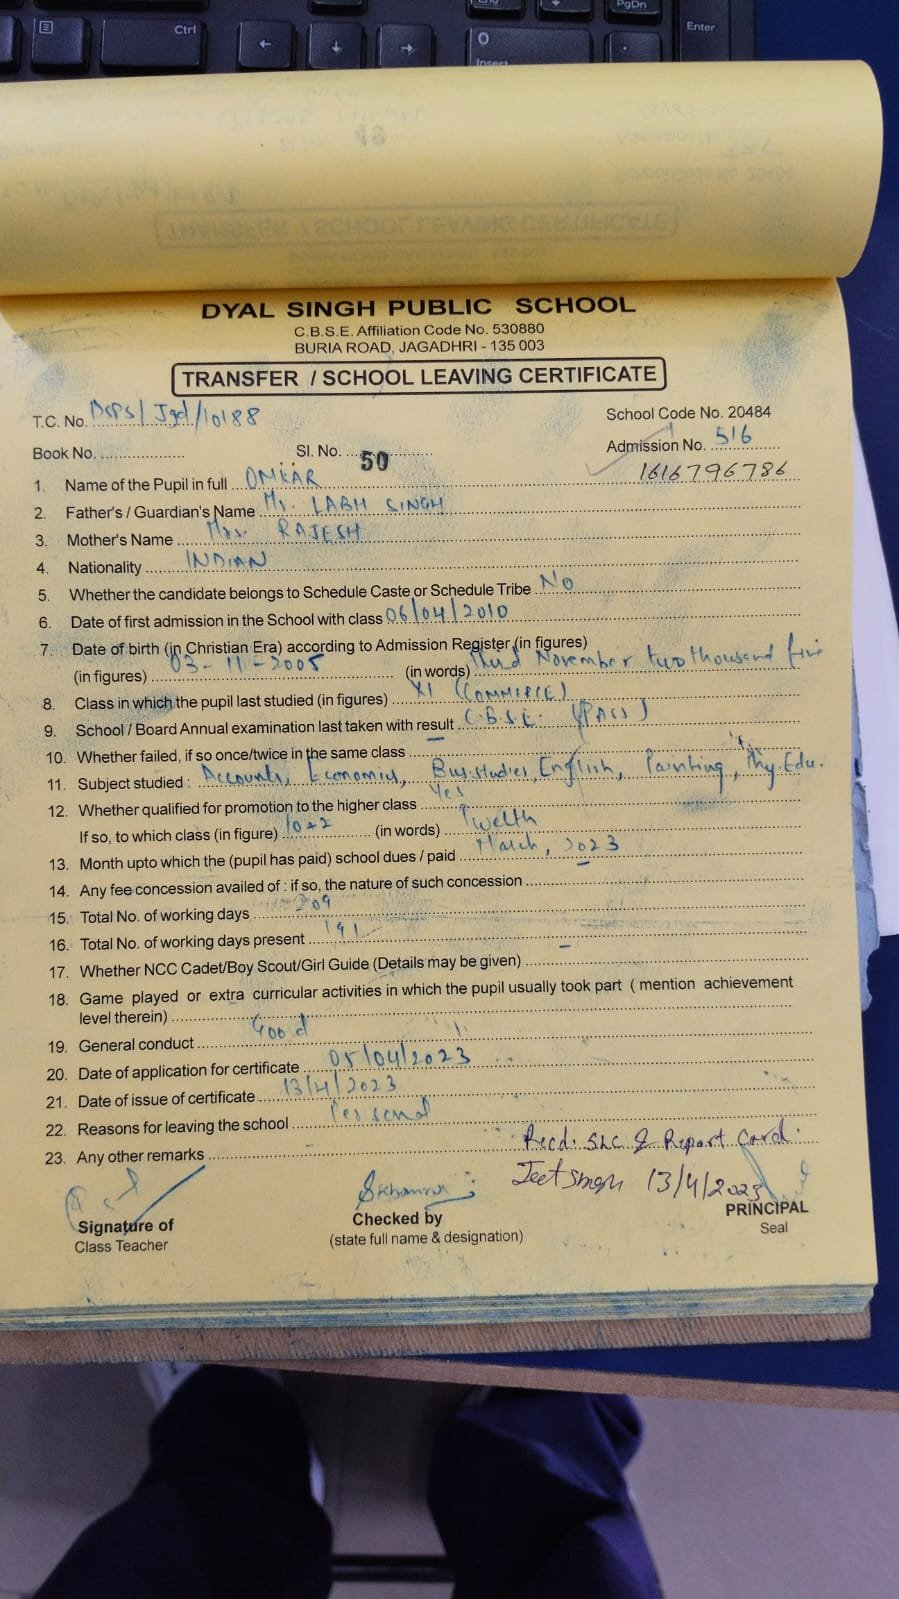 Ctrl
PgDn
Enter
0
Insert
DYAL SINGH PUBLIC SCHOOL
C.B.S.E. Affiliation Code No. 530880
BURIA ROAD, JAGADHRI - 135 003
TRANSFER / SCHOOL LEAVING CERTIFICATE
T.C. No. DSPS/Jgd/10188 School Code No. 20484
Book No. Sl. No. 50 Admission No. 516
1616796786
1. Name of the Pupil in full OMKAR
2. Father's / Guardian's Name Mr. LABH SINGH
3. Mother's Name Mrs. RAJESH
4. Nationality INDIAN
5. Whether the candidate belongs to Schedule Caste or Schedule Tribe No
6. Date of first admission in the School with class 06/04/2010
7. Date of birth (in Christian Era) according to Admission Register (in figures)
(in figures) 03-11-2005 (in words) Third November two thousand five
8. Class in which the pupil last studied (in figures) XI (COMMERCE)
9. School / Board Annual examination last taken with result C.B.S.E. (PASS)
10. Whether failed, if so once/twice in the same class
11. Subject studied : Accounts, Economics, Bus.studies, English, Painting, Phy.Edu.
12. Whether qualified for promotion to the higher class Yes
If so, to which class (in figure) 10+2 (in words) Twelth
13. Month upto which the (pupil has paid) school dues / paid March, 2023
14. Any fee concession availed of : if so, the nature of such concession
15. Total No. of working days 209
16. Total No. of working days present 191
17. Whether NCC Cadet/Boy Scout/Girl Guide (Details may be given)
18. Game played or extra curricular activities in which the pupil usually took part ( mention achievement
level therein)
19. General conduct Good
20. Date of application for certificate 05/04/2023
21. Date of issue of certificate 13/4/2023
22. Reasons for leaving the school Personal
23. Any other remarks Recd. SLC & Report Card.
Jeet Singh 13/4/2023
Signature of Checked by PRINCIPAL
Class Teacher (state full name & designation) Seal